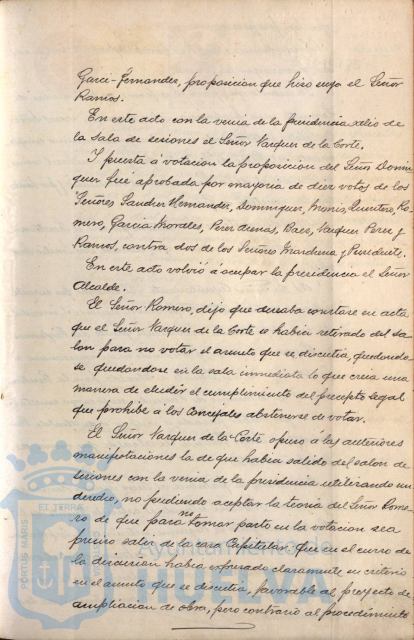 Garci-Fernandez, proposicion que hizo suya el Señor
Ramos.
En este acto con la venia de la presidencia salió de
la sala de sesiones el Señor Vazquez de la Corte.
Y puesta á votacion la proposicion del Señor Domin
guez fué aprobada por mayoria de diez votos de los
Señores Sanchez Hernandez, Dominguez, Quintero, Ro
mero, Garcia Morales, Perez Baez, Vazquez Perez y
Ramos, contra dos de los Señores Marchena y
En este acto volvió á ocupar la presidencia el Señor
Alcalde.
El Señor Romero, dijo que deseaba constase en acta
que el Señor Vazquez de la Corte se habia retirado del sa
lon para no votar el asunto que se discutia, quedando-
se quedandose en la sala inmediata lo que creia una
manera de eludir el cumplimiento del precepto legal
que prohibe á los Concejales abstenerse de votar.
El Señor Vazquez de la Corte opuso á las anteriores
manifestaciones la de que habia salido del salon de
sesiones con la venia de la presidencia utilizando un
derecho, no pudiendo aceptar la teoria del Señor Rome-
ro de que para no tomar parte en la votacion sea
preciso salir de la casa Capitular que en el curso de
la discusion habia expresado claramente su criterio
en el asunto que se discutia, favorable al proyecto de
ampliacion de obra, pero contrario al procedimiento
PORTUS MARIS
ET TERRÆ
Ayuntamiento de
HUELVA